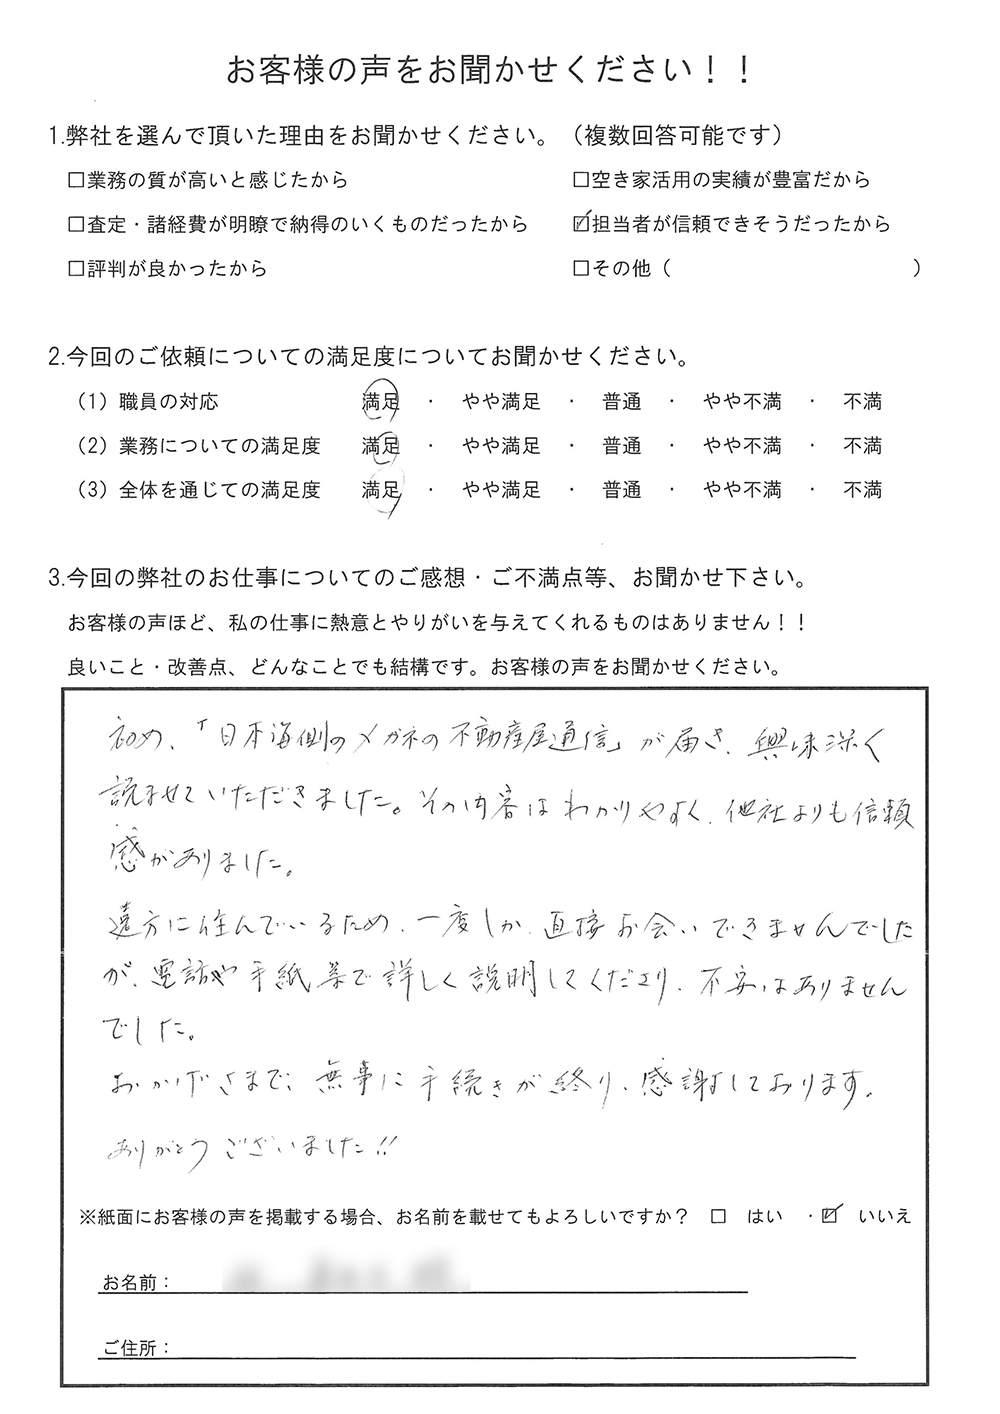 お客様の声をお聞かせください！！
1.弊社を選んで頂いた理由をお聞かせください。（複数回答可能です）
□業務の質が高いと感じたから □空き家活用の実績が豊富だから
□査定・諸経費が明瞭で納得のいくものだったから ☑担当者が信頼できそうだったから
□評判が良かったから □その他（ ）
2.今回のご依頼についての満足度についてお聞かせください。
（1）職員の対応 満足 ・ やや満足 ・ 普通 ・ やや不満 ・ 不満
（2）業務についての満足度 満足 ・ やや満足 ・ 普通 ・ やや不満 ・ 不満
（3）全体を通じての満足度 満足 ・ やや満足 ・ 普通 ・ やや不満 ・ 不満
3.今回の弊社のお仕事についてのご感想・ご不満点等、お聞かせ下さい。
お客様の声ほど、私の仕事に熱意とやりがいを与えてくれるものはありません！！
良いこと・改善点、どんなことでも結構です。お客様の声をお聞かせください。
初め、「日本海側のメガネの不動産屋通信」が届き、興味深く
読ませていただきました。その内容はわかりやすく、他社よりも信頼
感がありました。
遠方に住んでいるため、一度しか直接お会いできませんでした
が、電話や手紙等で詳しく説明してくださり、不安はありません
でした。
おかげさまで、無事に手続きが終り、感謝しております。
ありがとうございました!!
※紙面にお客様の声を掲載する場合、お名前を載せてもよろしいですか？ □ はい ・☑ いいえ
お名前：
ご住所：